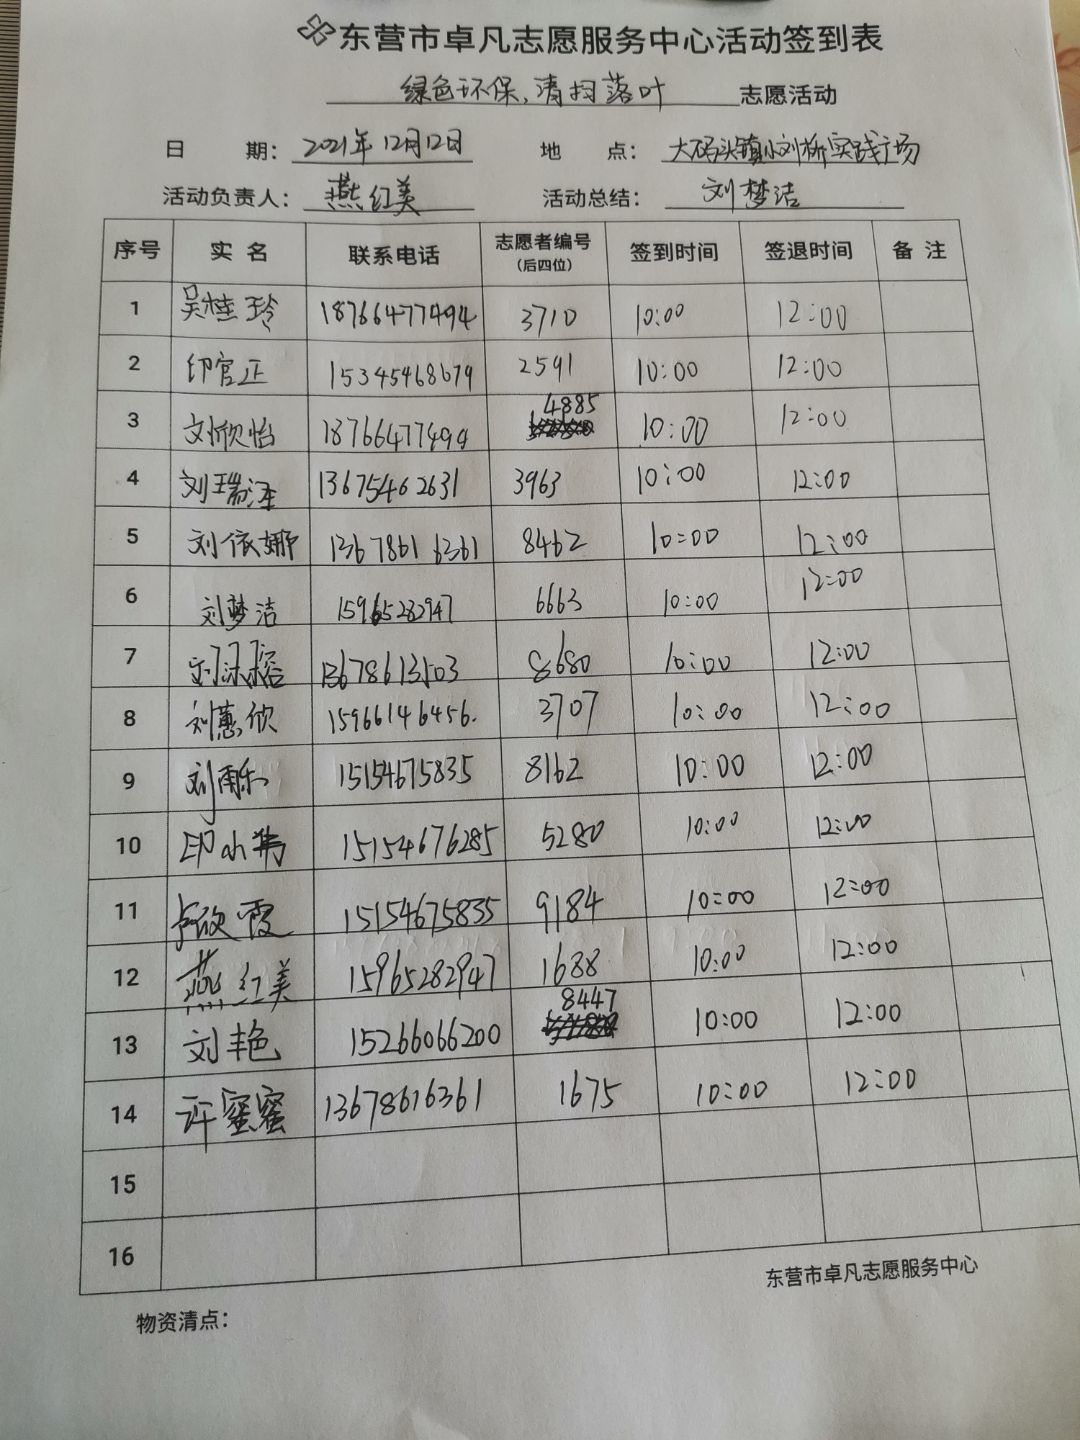 东营市卓凡志愿服务中心活动签到表
绿色环保,清扫落叶 志愿活动
日 期: 2021年12月12日 地 点: 大码头镇小刘桥实践广场
活动负责人: 燕红美 活动总结: 刘梦洁
序号 实名 联系电话 志愿者编号(后四位) 签到时间 签退时间 备注
1 吴桂玲 18766477494 3710 10:00 12:00
2 印官正 15345468679 2591 10:00 12:00
3 刘欣怡 18766477494 4885 10:00 12:00
4 刘瑞泽 13675462631 3963 10:00 12:00
5 刘依娜 13678616361 8462 10:00 12:00
6 刘梦洁 15965282947 6663 10:00 12:00
7 刘 13678613503 8680 10:00 12:00
8 刘蕙欣 15966146456. 3707 10:00 12:00
9 刘雨乐 15154675835 8162 10:00 12:00
10 印 15154676285 5280 10:00 12:00
11 卢欣霞 15154675835 9184 10:00 12:00
12 燕红美 15965282947 1688 10:00 12:00
13 刘艳 15266066200 8447 10:00 12:00
14 许蜜蜜 13678616361 1675 10:00 12:00
15
16
东营市卓凡志愿服务中心
物资清点: